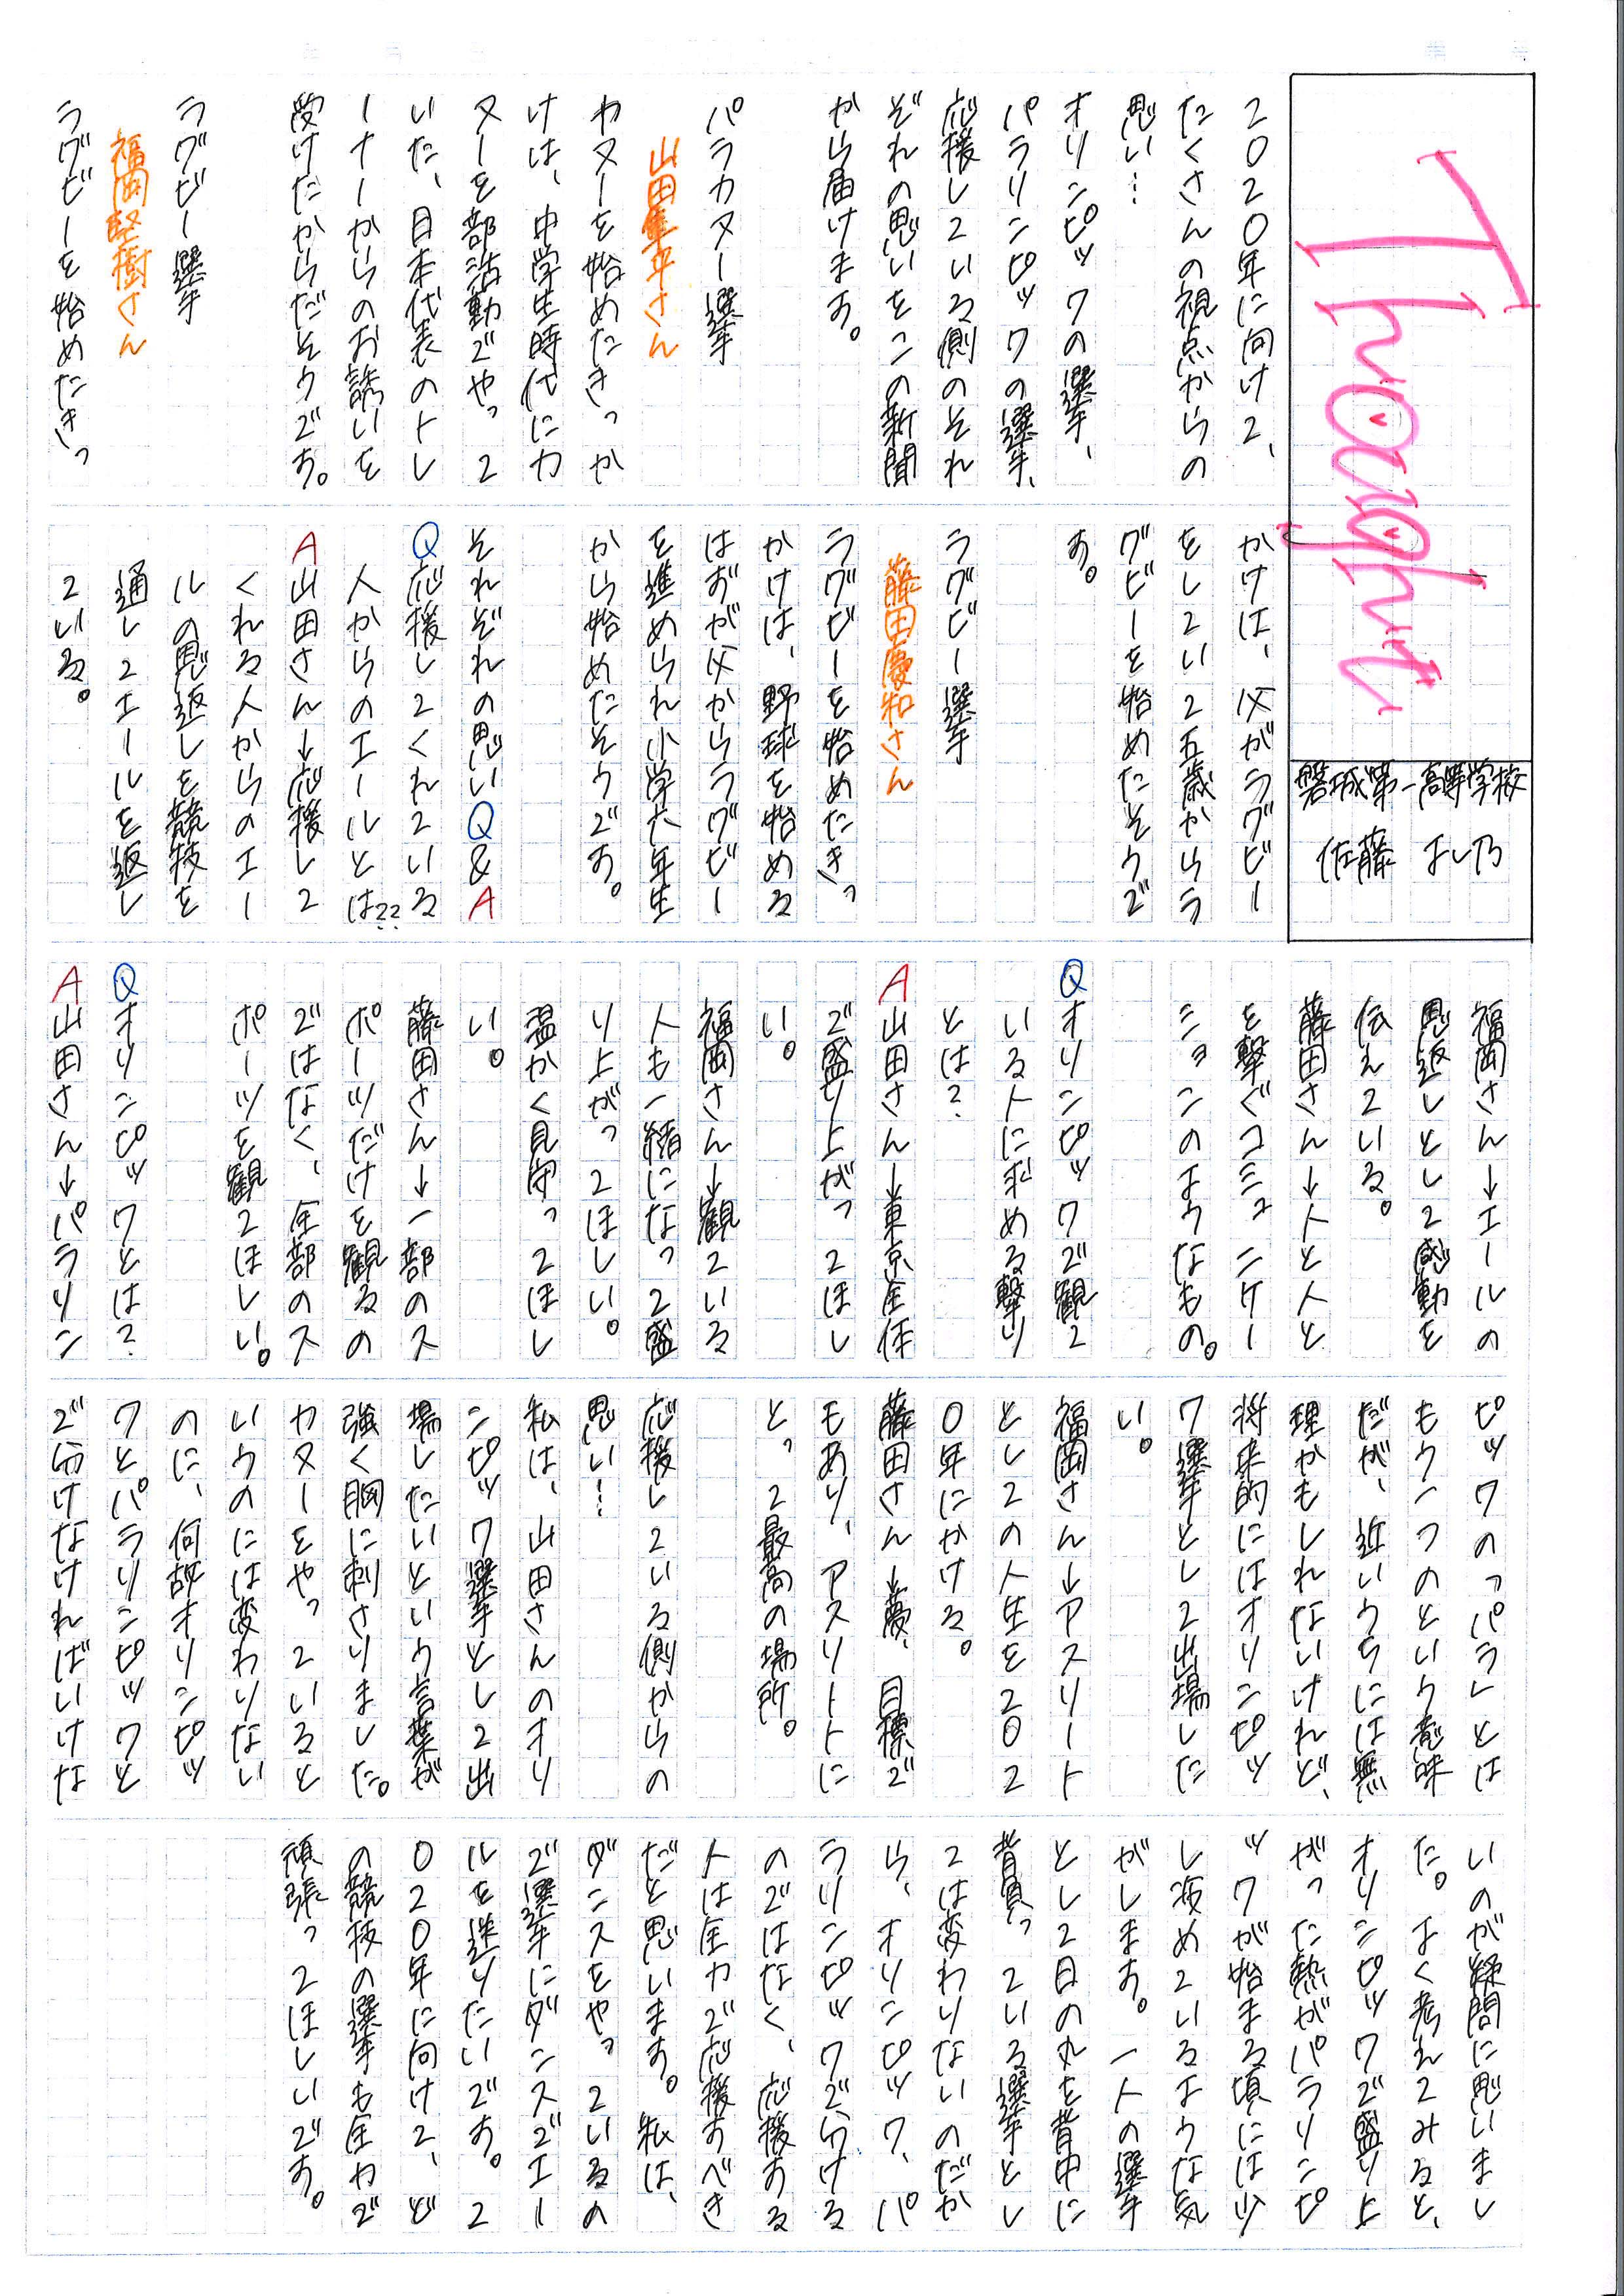 Thought
磐城第一高等学校
佐藤 よし乃
2020年に向けて、
たくさんの視点からの
思い…
オリンピックの選手、
パラリンピックの選手、
応援している側のそれ
ぞれの思いをこの新聞
から届けます。
パラカヌー選手
山田隼平さん
カヌーを始めたきっか
けは、中学生時代にカ
ヌーを部活動でやって
いた、日本代表のトレ
ーナーからのお誘いを
受けたからだそうです。
ラグビー選手
福岡堅樹さん
ラグビーを始めたきっ
かけは、父がラグビー
をしていて五歳からラ
グビーを始めたそうで
す。
ラグビー選手
藤田慶和さん
ラグビーを始めたきっ
かけは、野球を始める
はずが父からラグビー
を進められ小学六年生
から始めたそうです。
それぞれの思いQ&A
Q応援してくれている
人からのエールとは??
A山田さん→応援して
くれる人からのエー
ルの恩返しを競技を
通してエールを返し
ている。
福岡さん→エールの
恩返しとして感動を
伝えている。
藤田さん→人と人と
を撃ぐコミュニケー
ションのようなもの。
Qオリンピックで観て
いる人に求める撃り
とは?
A山田さん→東京全体
で盛り上がってほし
い。
福岡さん→観ている
人も一緒になって盛
り上がってほしい。
温かく見守ってほし
い。
藤田さん→一部のス
ポーツだけを観るの
ではなく、全部のス
ポーツを観てほしい。
Qオリンピックとは?
A山田さん→パラリン
ピックのっパラレとは
もう一つのという意味
だが、近いうちには無
理かもしれないけれど、
将来的にはオリンピッ
ク選手として出場した
い。
福岡さん→アスリート
としての人生を202
0年にかける。
藤田さん→夢、目標で
もあり、アスリートに
とって最高の場所。
応援している側からの
思い…
私は、山田さんのオリ
ンピック選手として出
場したいという言葉が
強く胸に刺さりました。
カヌーをやっていると
いうのには変わりない
のに、何故オリンピッ
クとパラリンピックと
で分けなければいけな
いのが疑問に思いまし
た。よく考えてみると、
オリンピックで盛り上
がった熱がパラリンピ
ックが始まる頃には少
し冷めているような気
がします。一人の選手
として日の丸を背中に
背負っている選手とし
ては変わりないのだか
ら、オリンピック、パ
ラリンピックで分ける
のではなく、応援する
人は全力で応援すべき
だと思います。私は、
ダンスをやっているの
で選手にダンスでエー
ルを送りたいです。2
020年に向けて、ど
の競技の選手も全力で
頑張ってほしいです。